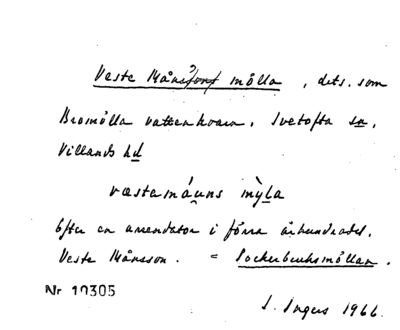 Veste Måns mölla, dets. som
Bromölla vattenkvarn. Ivetofta sn,
Villands hd
væstemáuns mỳla
Efter en arrendator i förra århundradet.
Veste Månsson. = Sockerbruksmöllan.
Nr 10305
I. Ingers 1966.